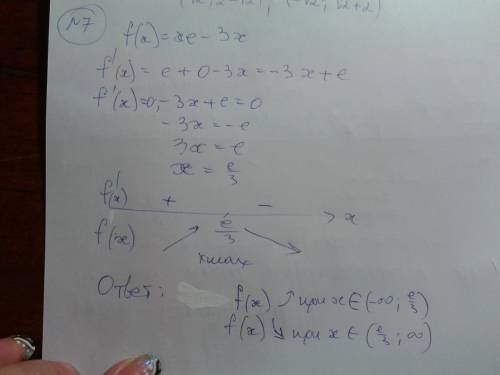 N7
f(x)=xe-3x
f'(x)=e+0-3x=-3x+e
f'(x)=0,-3x+e=0
-3x=-e
3x=e
x=e/3
f'(x) + - > x
f(x) ↗ e/3 ↘
xmax
Ответ: f(x) ↗ при x∈(-∞; e/3)
f(x) ↘ при x∈(e/3; ∞)